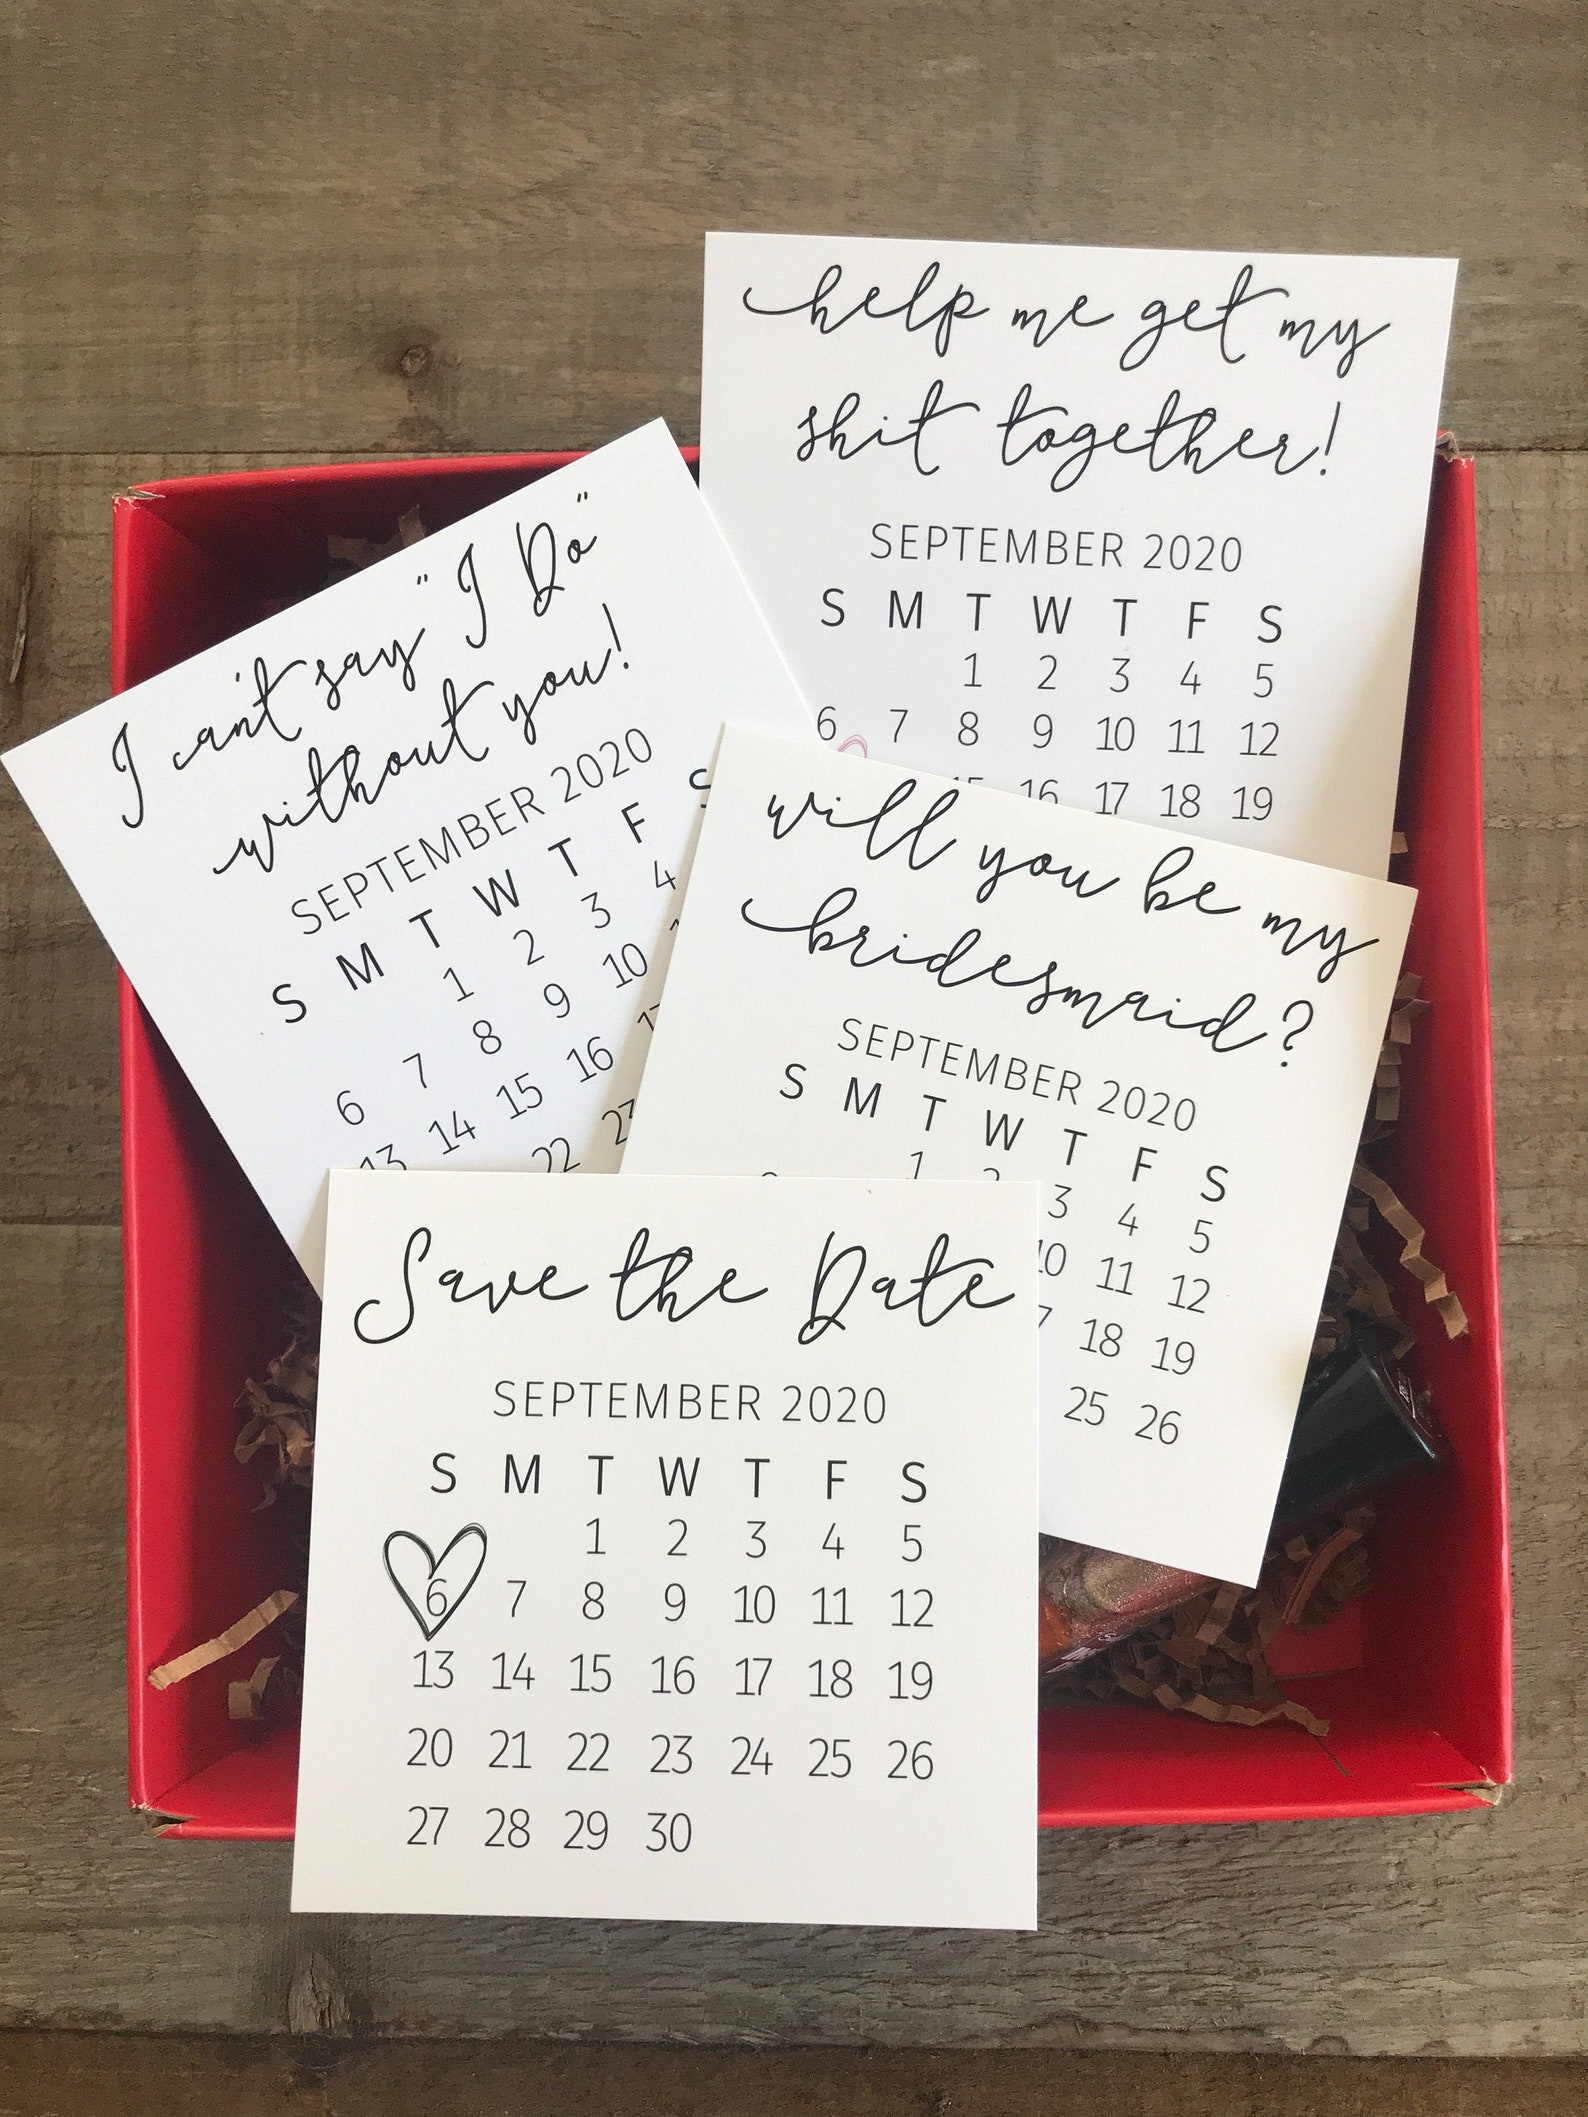 help me get my
shit together!
SEPTEMBER 2020
S M T W T F S
1 2 3 4 5
6 7 8 9 10 11 12
16 17 18 19
I can't say "I Do"
without you!
SEPTEMBER 2020
S M T W T F S
1 2 3 4
6 7 8 9 10
13 14 15 16
22
will you be my
bridesmaid?
SEPTEMBER 2020
S M T W T F S
1 2 3 4 5
10 11 12
18 19
25 26
Save the Date
SEPTEMBER 2020
S M T W T F S
1 2 3 4 5
6 7 8 9 10 11 12
13 14 15 16 17 18 19
20 21 22 23 24 25 26
27 28 29 30